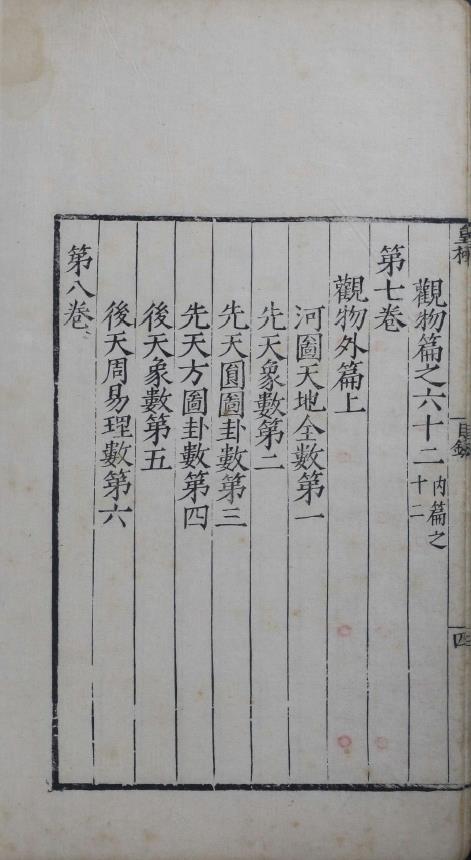 皇極
目錄
四
觀物篇之六十二 內篇之十二
第七卷
觀物外篇上
河圖天地全數第一
先天象數第二
先天圓圖卦數第三
先天方圖卦數第四
後天象數第五
後天周易理數第六
第八卷